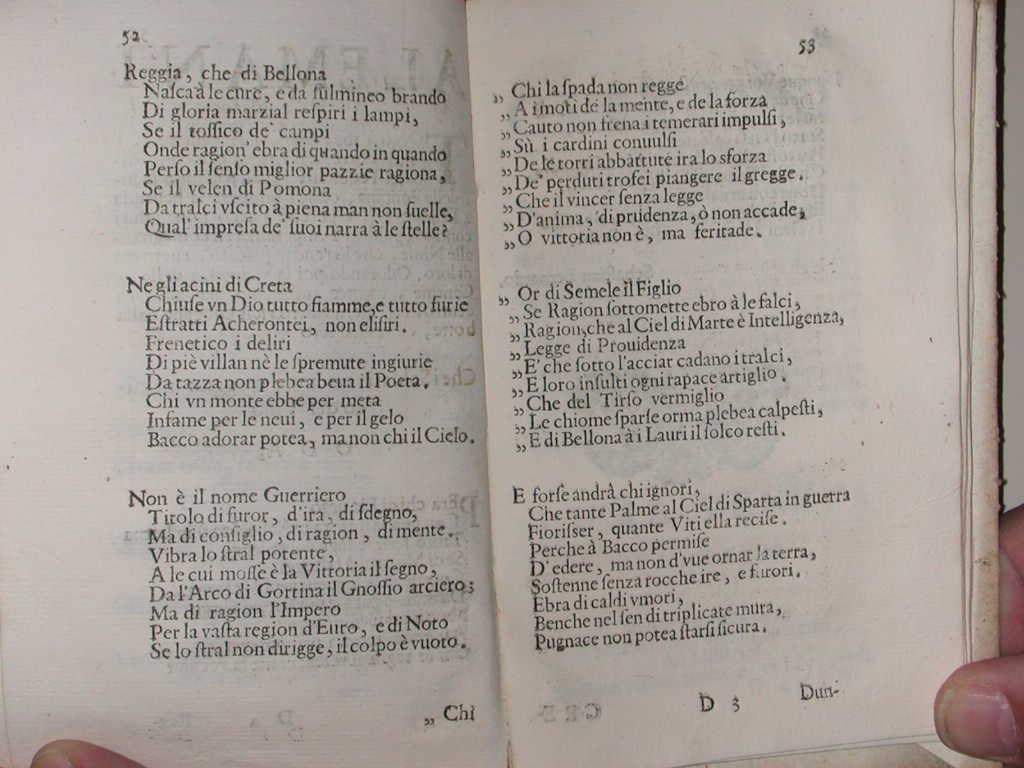 52
Reggia, che di Bellona
Naſca à le cure, e da fulmineo brando
Di gloria marzial reſpiri i lampi,
Se il toſſico de' campi
Onde ragion' ebra di quando in quando
Perſo il ſenſo miglior pazzie ragiona,
Se il velen di Pomona
Da tralci vſcito à piena man non ſuelle,
Qual' impreſa de' ſuoi narra à le ſtelle?
Ne gli acini di Creta
Chiuſe vn Dio tutto fiamme, e tutto furie
Eſtratti Acherontei, non eliſiri.
Frenetico i deliri
Di piè villan nè le ſpremute ingiurie
Da tazza non plebea beua il Poeta.
Chi vn monte ebbe per meta
Infame per le neui, e per il gelo
Bacco adorar potea, ma non chi il Cielo.
Non è il nome Guerriero
Titolo di furor, d'ira, di ſdegno,
Ma di conſiglio, di ragion, di mente.
Vibra lo ſtral potente,
A le cui moſſe è la Vittoria il ſegno,
Da l'Arco di Gortina il Gnoſſio arciero;
Ma di ragion l'Impero
Per la vaſta region d'Euro, e di Noto
Se lo ſtral non dirigge, il colpo è vuoto.
„ Chi
53
„ Chi la ſpada non regge
„ A i moti de la mente, e de la forza
„ Cauto non frena i temerari impulſi,
„ Sù i cardini conuulſi
„ De le torri abbattute ira lo sforza
„ De' perduti trofei piangere il gregge.
„ Che il vincer ſenza legge
„ D'anima, di prudenza, ò non accade,
„ O vittoria non è, ma feritade.
„ Or di Semele il Figlio
„ Se Ragion ſottomette ebro à le falci,
„ Ragion, che al Ciel di Marte è Intelligenza,
„ Legge di Prouidenza
„ E' che ſotto l'acciar cadano i tralci,
„ E loro inſulti ogni rapace artiglio.
„ Che del Tirſo vermiglio
„ Le chiome ſparſe orma plebea calpeſti,
„ E di Bellona à i Lauri il ſolco reſti.
E forſe andrà chi ignori,
Che tante Palme al Ciel di Sparta in guerra
Fioriſſer, quante Viti ella reciſe.
Perche à Bacco permiſe
D' edere, ma non d'vue ornar la terra,
Soſtenne ſenza rocche ire, e furori.
Ebra di caldi vmori,
Benche nel ſen di triplicate mura,
Pugnace non potea ſtarſi ſicura.
D 3
Dun-